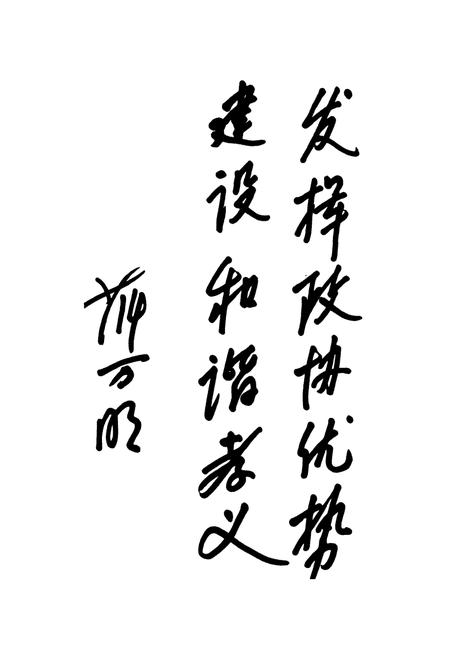 发挥政协优势
建设和谐孝义
薛万明